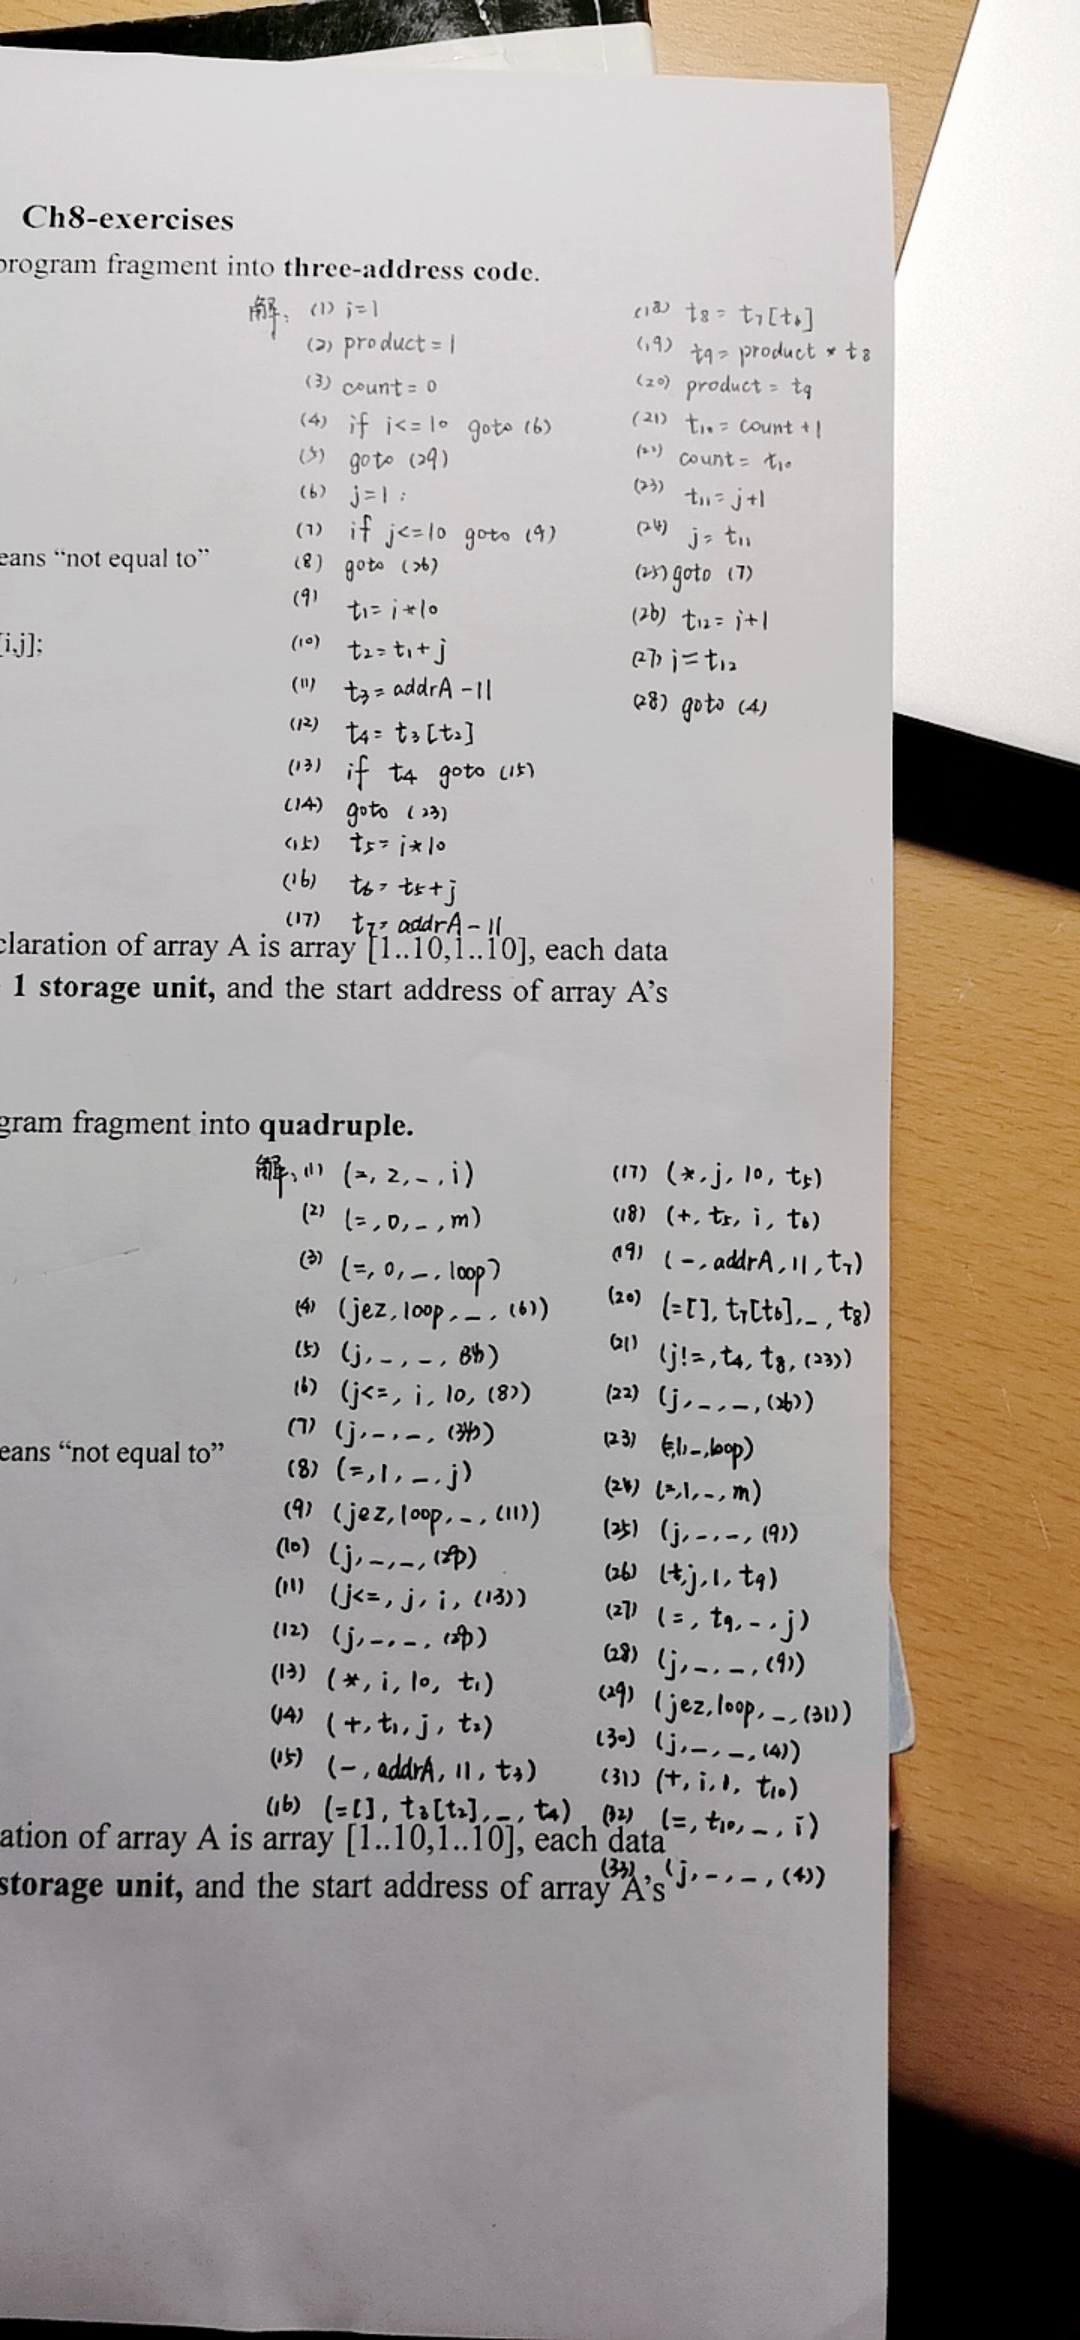 Ch8-exercises
program fragment into three-address code.
解: (1) i=1
(2) product = 1
(3) count = 0
(4) if i<=10 goto (6)
(5) goto (29)
(6) j=1;
(7) if j<=10 goto (9)
eans “not equal to”
(8) goto (26)
(9) t1 = i*10
[i,j];
(10) t2 = t1+j
(11) t3 = addrA -11
(12) t4 = t3[t2]
(13) if t4 goto (15)
(14) goto (23)
(15) t5 = i*10
(16) t6 = t5+j
(17) t7 = addrA-11
(18) t8 = t7[t6]
(19) t9 = product * t8
(20) product = t9
(21) t10 = count +1
(22) count = t10
(23) t11 = j+1
(24) j = t11
(25) goto (7)
(26) t12 = i+1
(27) i = t12
(28) goto (4)
claration of array A is array [1..10,1..10], each data
1 storage unit, and the start address of array A’s
gram fragment into quadruple.
解: (1) (=, 2, -, i)
(2) (=, 0, -, m)
(3) (=, 0, -, loop)
(4) (jez, loop, -, (6))
(5) (j, -, -,
(6) (j<=, i, 10, (8))
(7) (j, -, -,
eans “not equal to”
(8) (=, 1, -, j)
(9) (jez, loop, -, (11))
(10) (j, -, -,
(11) (j<=, j, i, (13))
(12) (j, -, -,
(13) (*, i, 10, t1)
(14) (+, t1, j, t2)
(15) (-, addrA, 11, t3)
(16) (=[], t3[t2], -, t4)
(17) (*, j, 10, t5)
(18) (+, t5, i, t6)
(19) (-, addrA, 11, t7)
(20) (=[], t7[t6], -, t8)
(21) (j!=, t4, t8, (23))
(22) (j, -, -, (26))
(23) (=,1,-,loop)
(24) (=,1,-,m)
(25) (j, -, -, (9))
(26) (+,j,1,t9)
(27) (=, t9, -, j)
(28) (j, -, -, (9))
(29) (jez, loop, -, (31))
(30) (j, -, -, (4))
(31) (+, i, 1, t10)
(32) (=, t10, -, i)
(33) (j, -, -, (4))
ation of array A is array [1..10,1..10], each data
storage unit, and the start address of array A’s